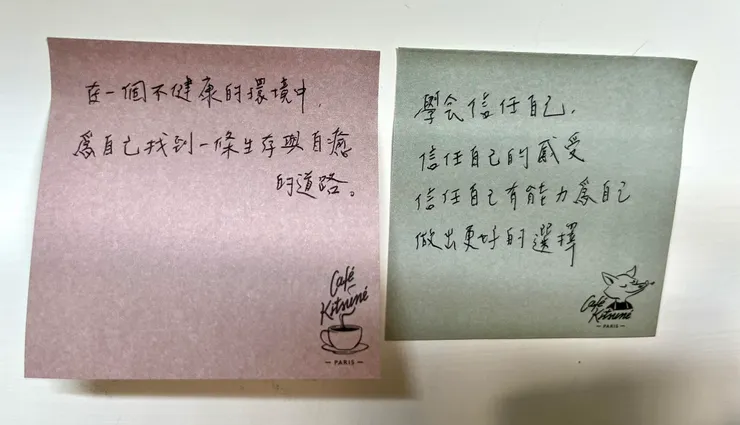 在一個不健康的環境中,
為自己找到一條生存與自癒
的道路。
Café
Kitsuné
— PARIS —
學会信任自己,
信任自己的感受
信任自己有能力為自己
做出更好的選擇
Café
Kitsuné
— PARIS —